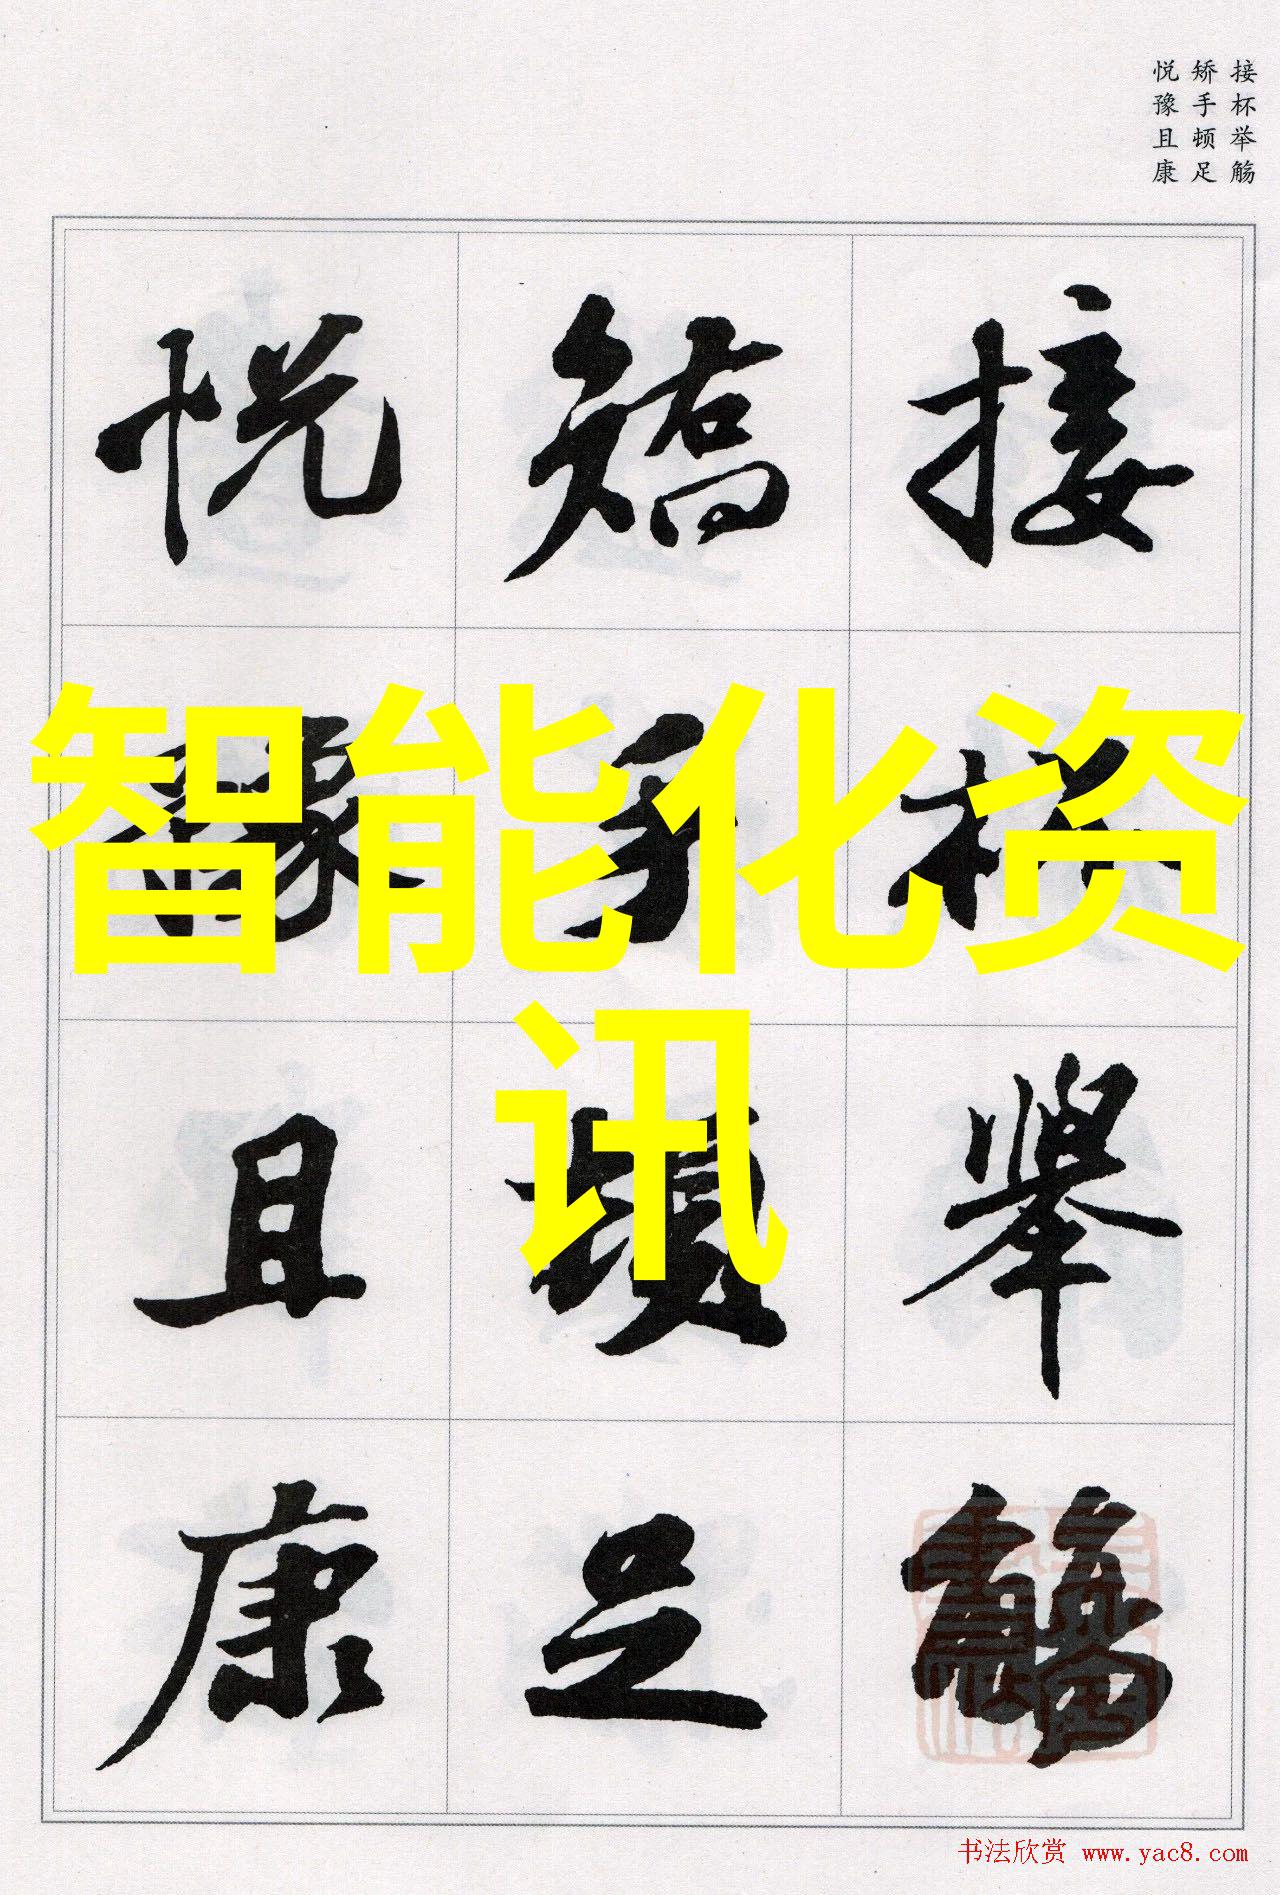 接杯举觞
矫手顿足
悦豫且康
接杯舉觴
矯手頓足
悦豫且康
智能化资
讯
书法欣赏 www.yac8.com